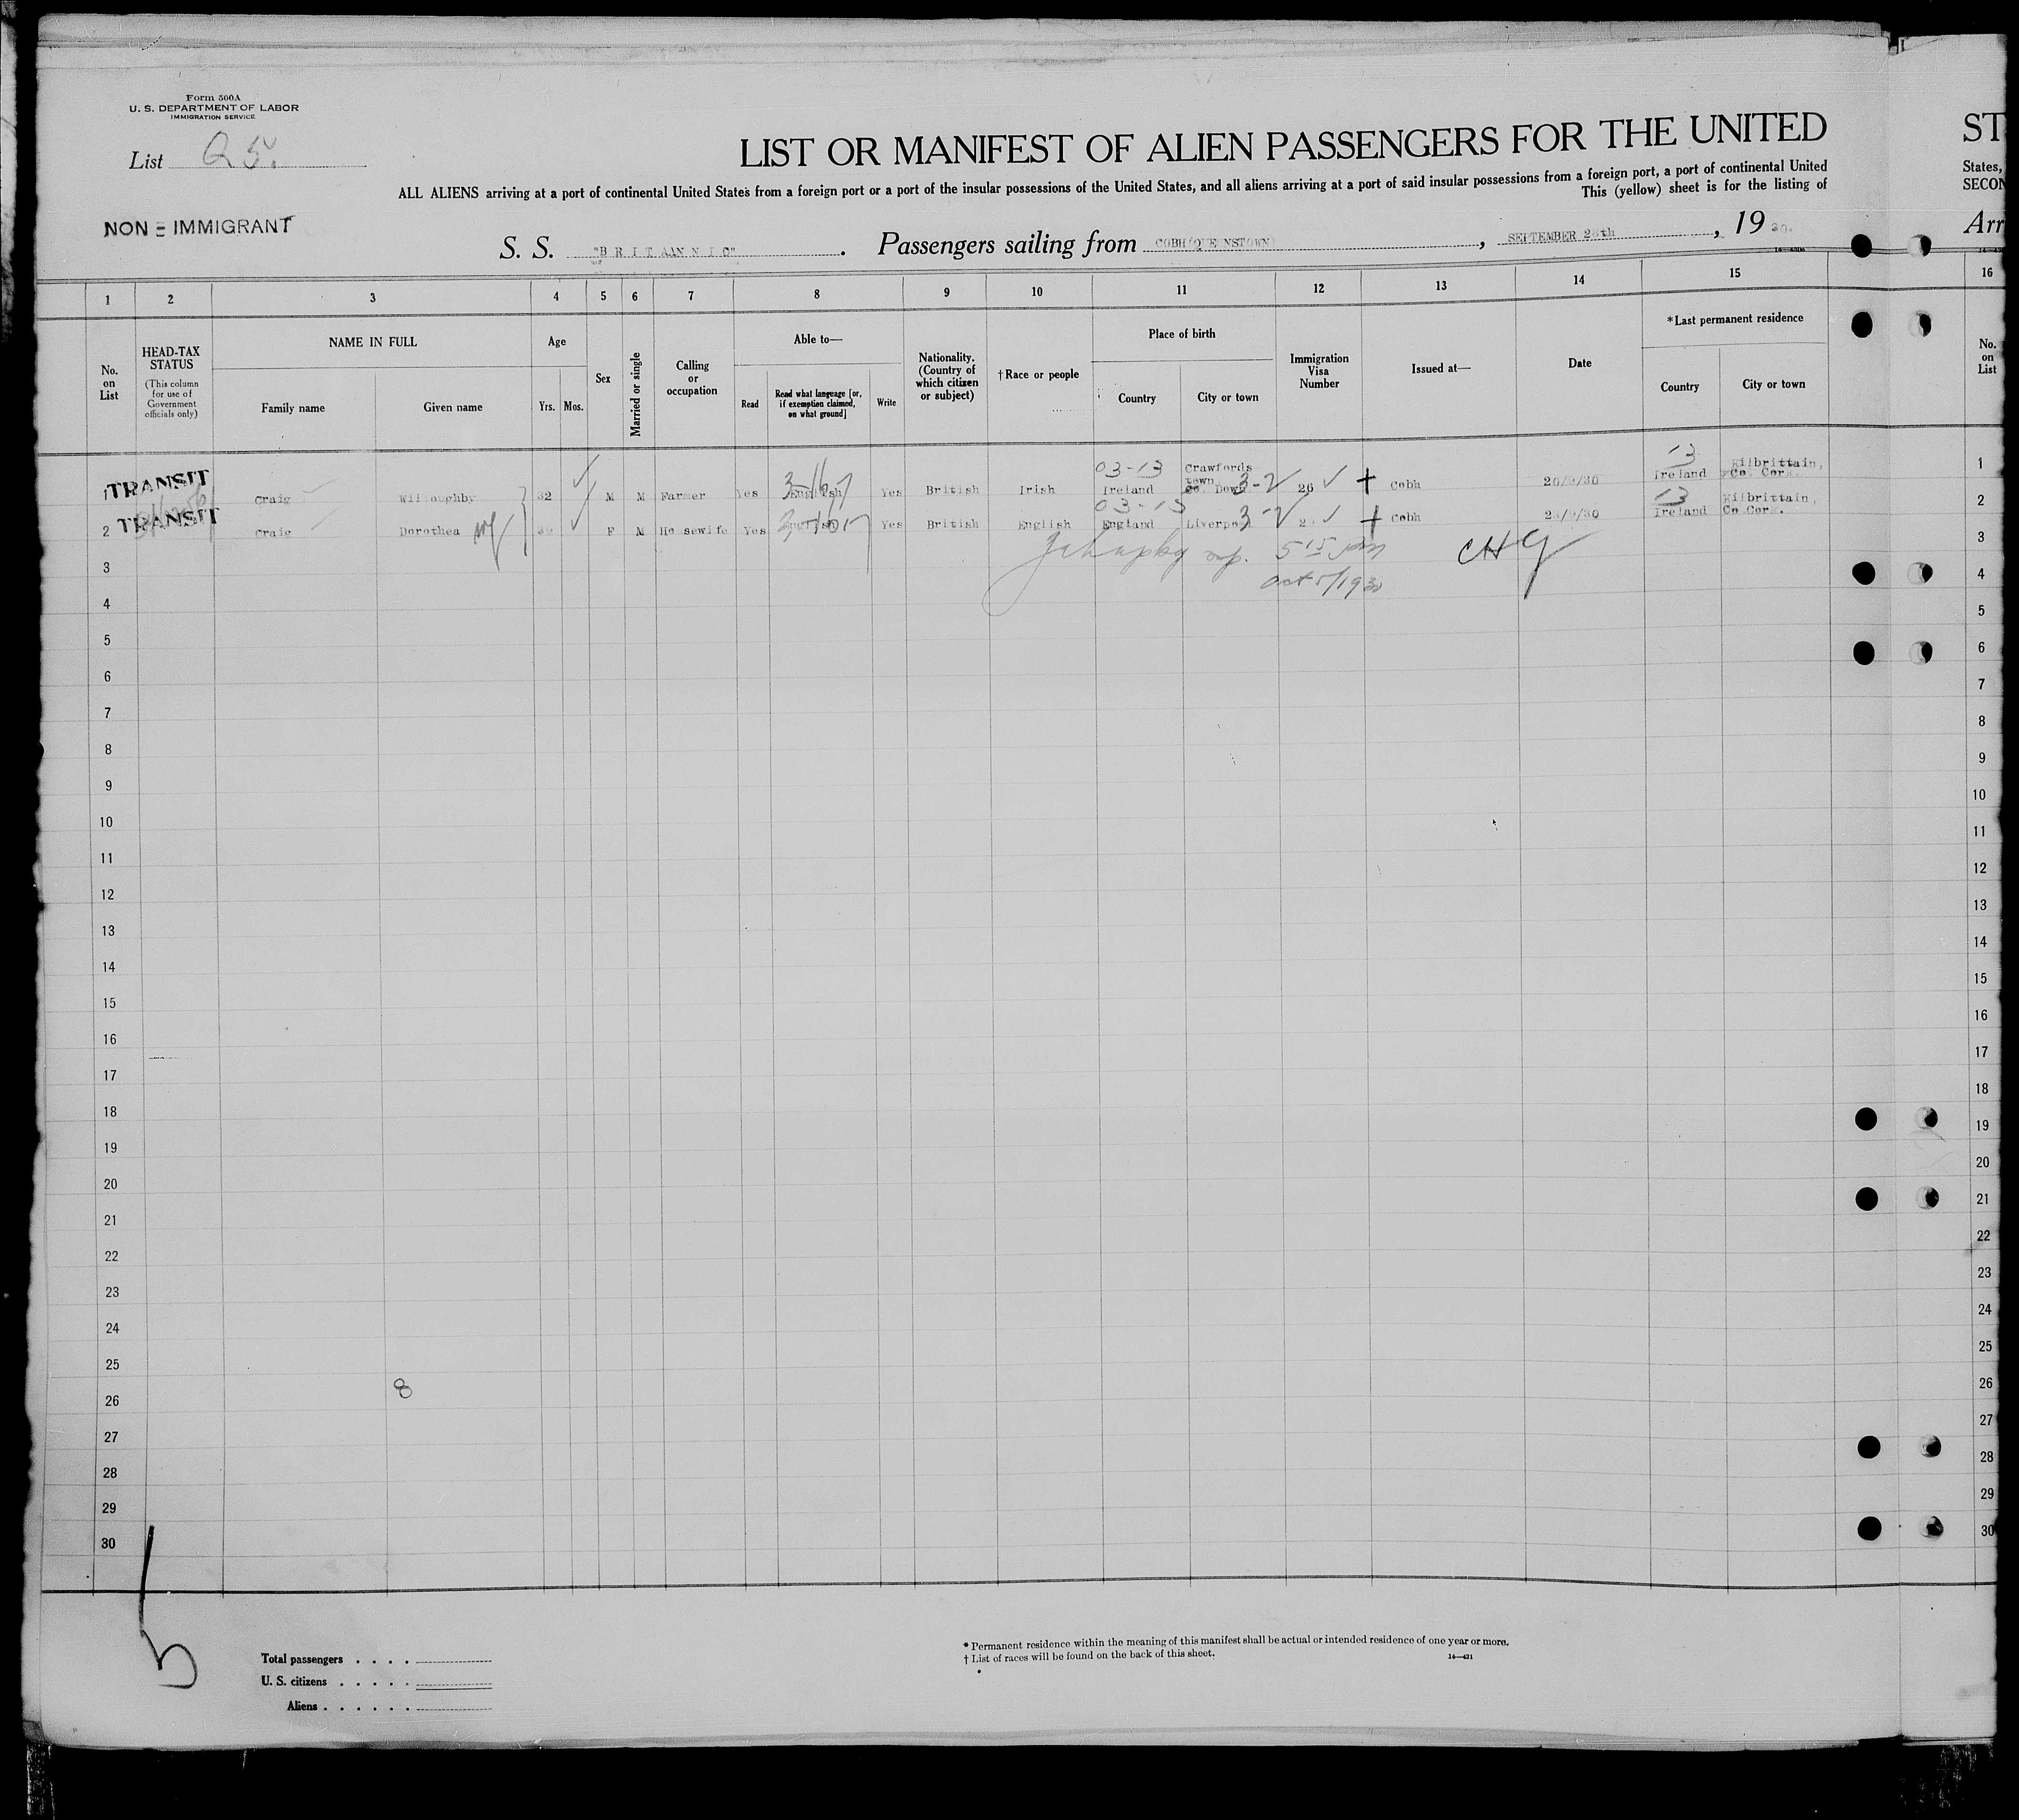 Form 500A
U. S. DEPARTMENT OF LABOR
IMMIGRATION SERVICE
List 25.
NON = IMMIGRANT
LIST OR MANIFEST OF ALIEN PASSENGERS FOR THE UNITED
ST
ALL ALIENS arriving at a port of continental United States from a foreign port or a port of the insular possessions of the United States, and all aliens arriving at a port of said insular possessions from a foreign port, a port of continental United
States,
This (yellow) sheet is for the listing of
SECON
S. S. "BRITANNIC". Passengers sailing from COBH(QUEENSTOWN), SEPTEMBER 28th, 1930.
Arr
1 2 3 4 5 6 7 8 9 10 11 12 13 14 15 16
No. on List
HEAD-TAX STATUS
(This column for use of Government officials only)
NAME IN FULL
Family name
Given name
Age
Yrs.
Mos.
Sex
Married or single
Calling or occupation
Able to—
Read
Read what language [or, if exemption claimed, on what ground]
Write
Nationality. (Country of which citizen or subject)
†Race or people
Place of birth
Country
City or town
Immigration Visa Number
Issued at—
Date
*Last permanent residence
Country
City or town
No. on List
1 TRANSIT Craig Willoughby 32 M M Farmer Yes English Yes British Irish 03-13 Ireland Crawfords town Co. Down 3-2 26 Cobh 20/9/30 13 Ireland Kilbrittain, Co. Cork 1
2 TRANSIT Craig Dorothea F M Housewife Yes Yes British English 03-13 England Liverpool 3-2 Cobh 13 Ireland Kilbrittain, Co Cork. 2
3 515 pm CHG 3
Oct 5/1930
4 4
5 5
6 6
7 7
8 8
9 9
10 10
11 11
12 12
13 13
14 14
15 15
16 16
17 17
18 18
19 19
20 20
21 21
22 22
23 23
24 24
25 25
8
26 26
27 27
28 28
29 29
30 30
5
Total passengers
U. S. citizens
Aliens
* Permanent residence within the meaning of this manifest shall be actual or intended residence of one year or more.
† List of races will be found on the back of this sheet.
14—431